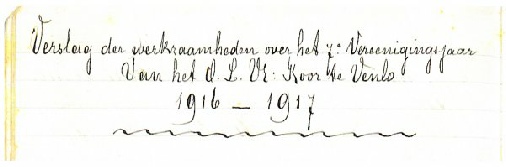 Verslag der werkzaamheden over het 7e Vereenigingsjaar
Van het O. L. Vr: Koor te Venlo
1916 — 1917